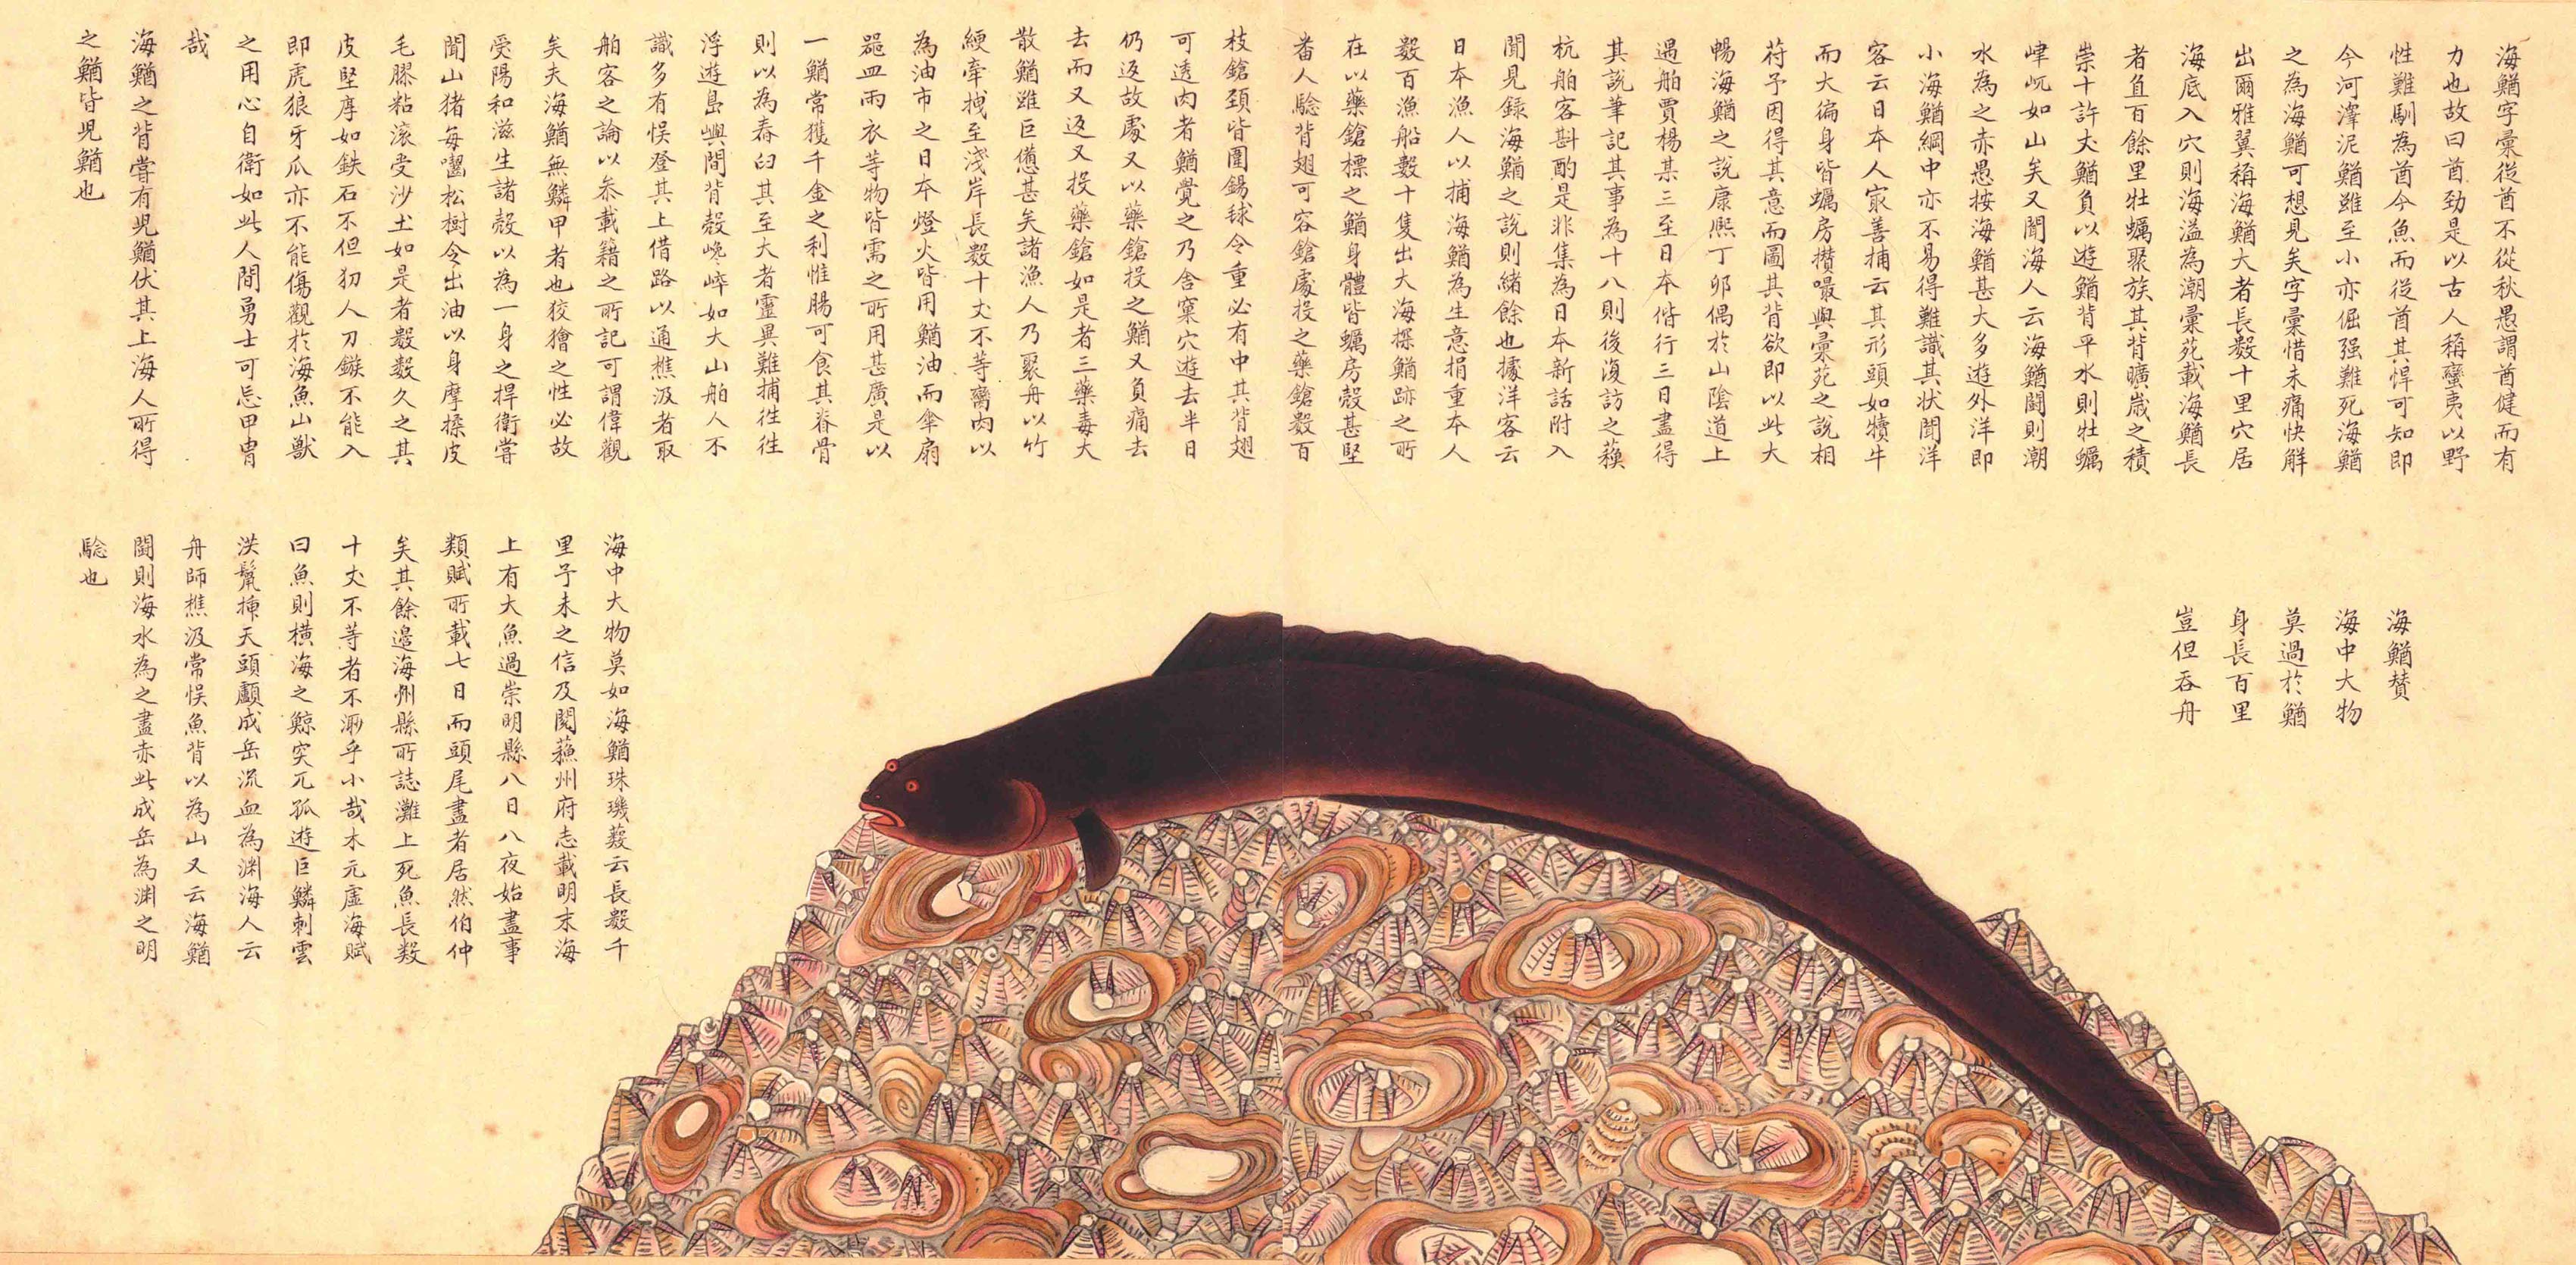 海鰌字彙從酋不從秋愚謂酋健而有
力也故曰酋勁是以古人稱蠻夷以野
性難馴為酋今魚而從酋其悍可知即
今河澤泥鰌雖至小亦倔强難死海鰌
之為海鰌可想見矣字彙惜未痛快解
出爾雅翼稱海鰌大者長數十里穴居
海底入穴則海溢為潮彙苑載海鰌長
者直百餘里牡蠣聚族其背曠歲之積
崇十許丈鰌負以遊鰌背平水則牡蠣
峍屼如山矣又聞海人云海鰌鬪則潮
水為之赤愚按海鰌甚大多遊外洋即
小海鰌網中亦不易得難識其狀聞洋
客云日本人最善捕云其形頭如犢牛
而大徧身皆蠣房攢嘬與彙苑之說相
符予因得其意而圖其背欲即以此大
暢海鰌之說康熙丁卯偶於山陰道上
遇舶賈楊某三至日本偕行三日盡得
其說筆記其事為十八則後復訪之蘓
杭舶客斟酌是非集為日本新話附入
聞見錄海鰌之說則緒餘也據洋客云
日本漁人以捕海鰌為生意捐重本人
數百漁船數十隻出大海探鰌跡之所
在以藥鎗標之鰌身體皆蠣房殼甚堅
番人騐背翅可容鎗處投之藥鎗數百
枝鎗頚皆圍錫球令重必有中其背翅
可透肉者鰌覺之乃舍窠穴遊去半日
仍返故處又以藥鎗投之鰌又負痛去
去而又返又投藥鎗如是者三藥毒大
散鰌雖巨憊甚矣諸漁人乃聚舟以竹
綆牽拽至淺岸長數十丈不等臠肉以
為油市之日本燈火皆用鰌油而傘扇
器皿雨衣等物皆需之所用甚廣是以
一鰌常獲千金之利惟腸可食其脊骨
則以為舂臼其至大者靈異難捕徃徃
浮遊島嶼間背殼巉崪如大山舶人不
識多有悮登其上借路以通樵汲者取
舶客之論以叅載籍之所記可謂偉觀
矣夫海鰌無鱗甲者也狡獪之性必故
受陽和滋生諸殼以為一身之捍衛嘗
聞山猪每嚙松樹令出油以身摩擦皮
毛膠粘滚受沙土如是者數數久之其
皮堅厚如鉄石不但犯人刀鏃不能入
即虎狼牙爪亦不能傷觀於海魚山獸
之用心自衛如此人間勇士可忘甲胄
哉
海鰌之背嘗有児鰌伏其上海人所得
之鰌皆児鰌也
海鰌賛
海中大物
莫過於鰌
身長百里
豈但吞舟
海中大物莫如海鰌珠璣藪云長數千
里予未之信及閱蘓州府志載明末海
上有大魚過崇明縣八日八夜始盡事
類賦所載七日而頭尾盡者居然伯仲
矣其餘邉海州縣所誌灘上死魚長數
十丈不等者不渺乎小哉木元虛海賦
曰魚則横海之鯨突兀孤遊巨鱗刺雲
洪鬣揷天頭顱成岳流血為渊海人云
舟師樵汲常悮魚背以為山又云海鰌
鬪則海水為之盡赤此成岳為渊之明
騐也